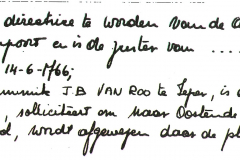 directrice te worden van de
er is de zuster van ....
14-6-1766;
J.B. VAN ROO te Ieper, is
, solliciteert om naar Oostende
d, wordt afgewezen daar de pl